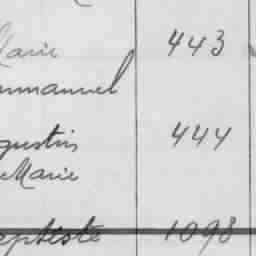 Marie 443
mmanuel
gustin 444
Marie
eptiste 1098